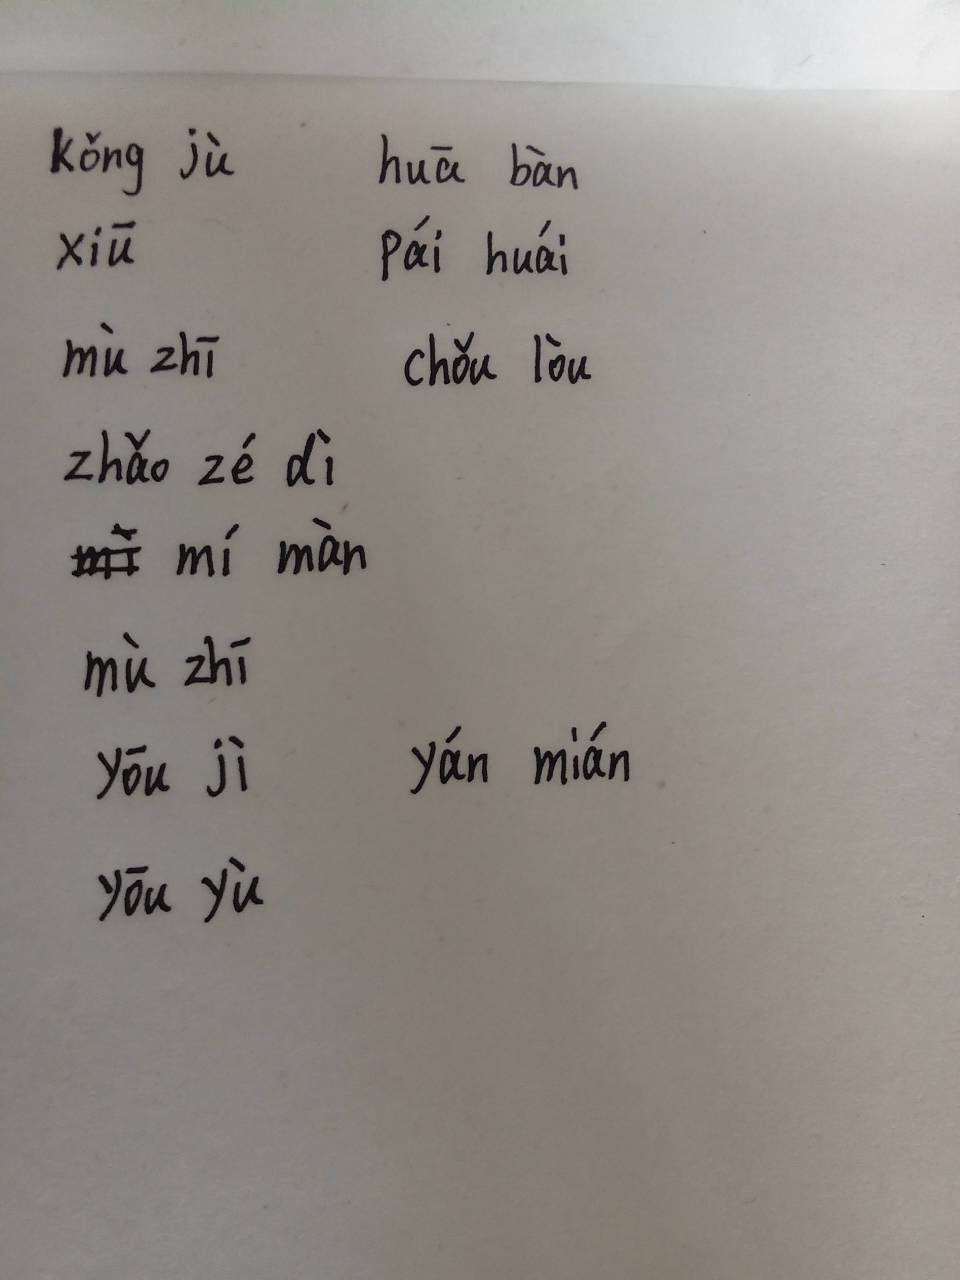 kǒng jù huā bàn
xiū pái huái
mù zhī chǒu lòu
zhǎo zé dì
mí màn
mù zhī
yōu jì yán mián
yōu yù